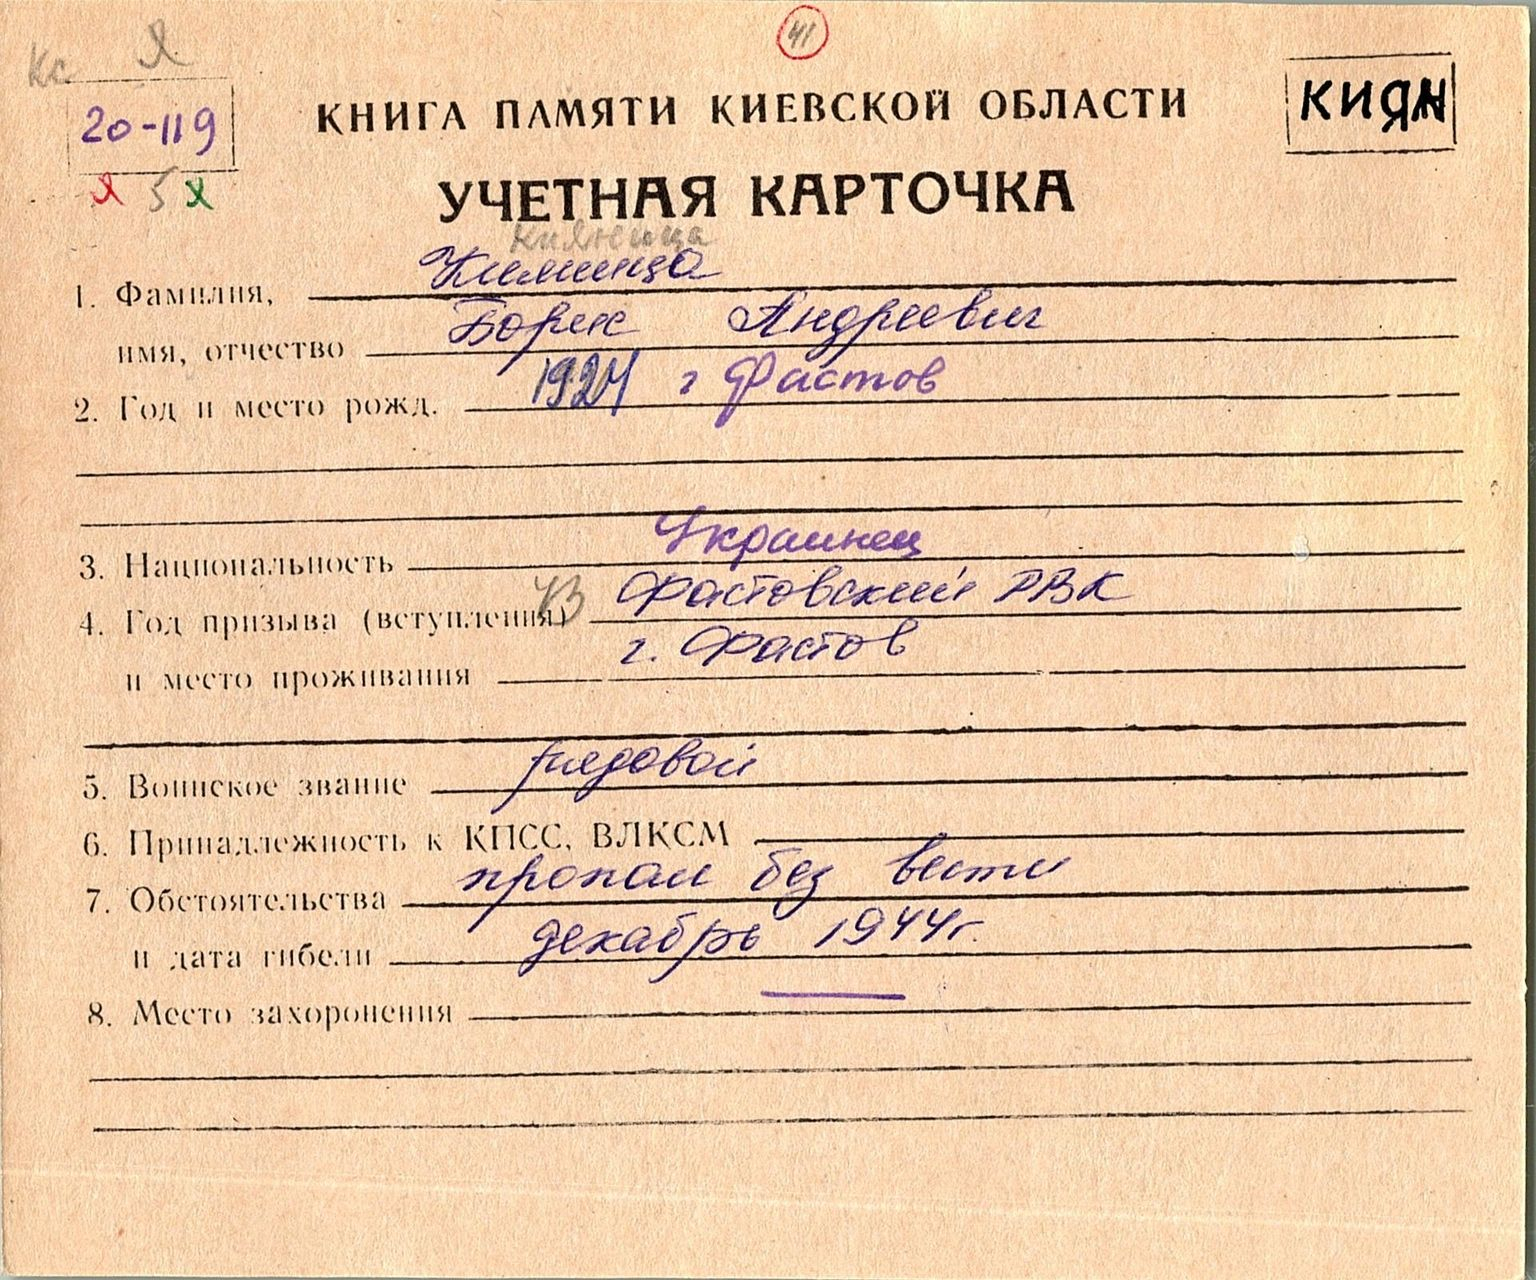 41
Кс Я
20-119
КНИГА ПАМЯТИ КИЕВСКОЙ ОБЛАСТИ
КИЯН
Я 5 Я
УЧЕТНАЯ КАРТОЧКА
Кияница
1. Фамилия,
Борис Андреевич
имя, отчество
2. Год и место рожд. 1924 г Фастов
3. Национальность Украинец
4. Год призыва (вступления) 43 Фастовский РВК
и место проживания г. Фастов
5. Воинское звание рядовой
6. Принадлежность к КПСС, ВЛКСМ
7. Обстоятельства пропал без вести
и дата гибели декабрь 1944г.
8. Место захоронения —